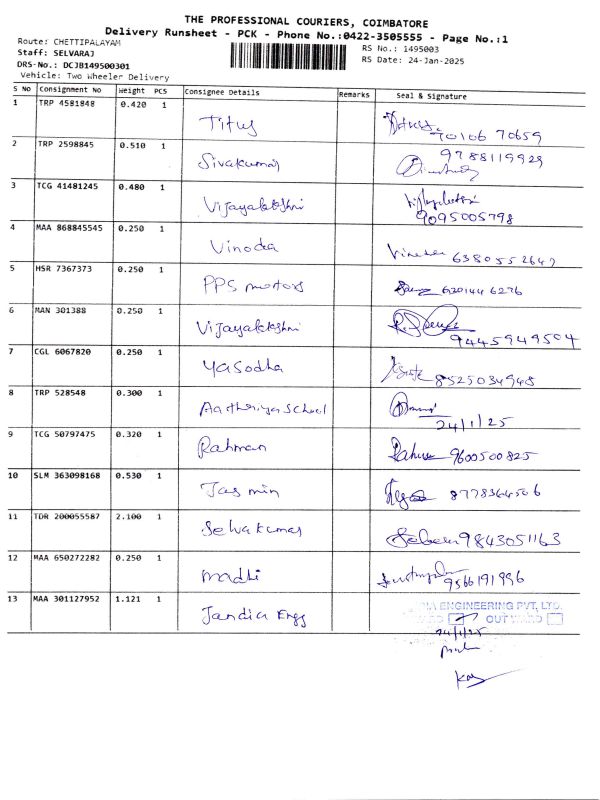 THE PROFESSIONAL COURIERS, COIMBATORE
Delivery Runsheet - PCK - Phone No.:0422-3505555 - Page No.:1
Route: CHETTIPALAYAM
Staff: SELVARAJ
DRS-No.: DCJB149500301
Vehicle: Two Wheeler Delivery
RS No.: 1495003
RS Date: 24-Jan-2025
S No Consignment No Height PCS Consignee Details Remarks Seal & Signature
1 TRP 4581848 0.420 1 Titus 70106 70659
2 TRP 2598845 0.510 1 Sivakumar 9788119929
3 TCG 41481245 0.480 1 Vijayalakshmi 9095005798
4 MAA 868845545 0.250 1 Vinodha 6380552647
5 HSR 7367373 0.250 1 PPS motors 6201446276
6 MAN 301388 0.250 1 Vijayalakshmi 9445949504
7 CGL 6067820 0.250 1 Yasodha 8525034948
8 TRP 528548 0.300 1 School 24/1/25
9 TCG 50797475 0.320 1 Rahman 9600500825
10 SLM 363098168 0.530 1 Jasmin 8778364506
11 TDR 200055587 2.100 1 Selvakumar 9843051163
12 MAA 650272282 0.250 1 madhi 9566191996
13 MAA 301127952 1.121 1 Jandia Engg
ENGINEERING PVT. LTD.
OUTWARD
24/1/25